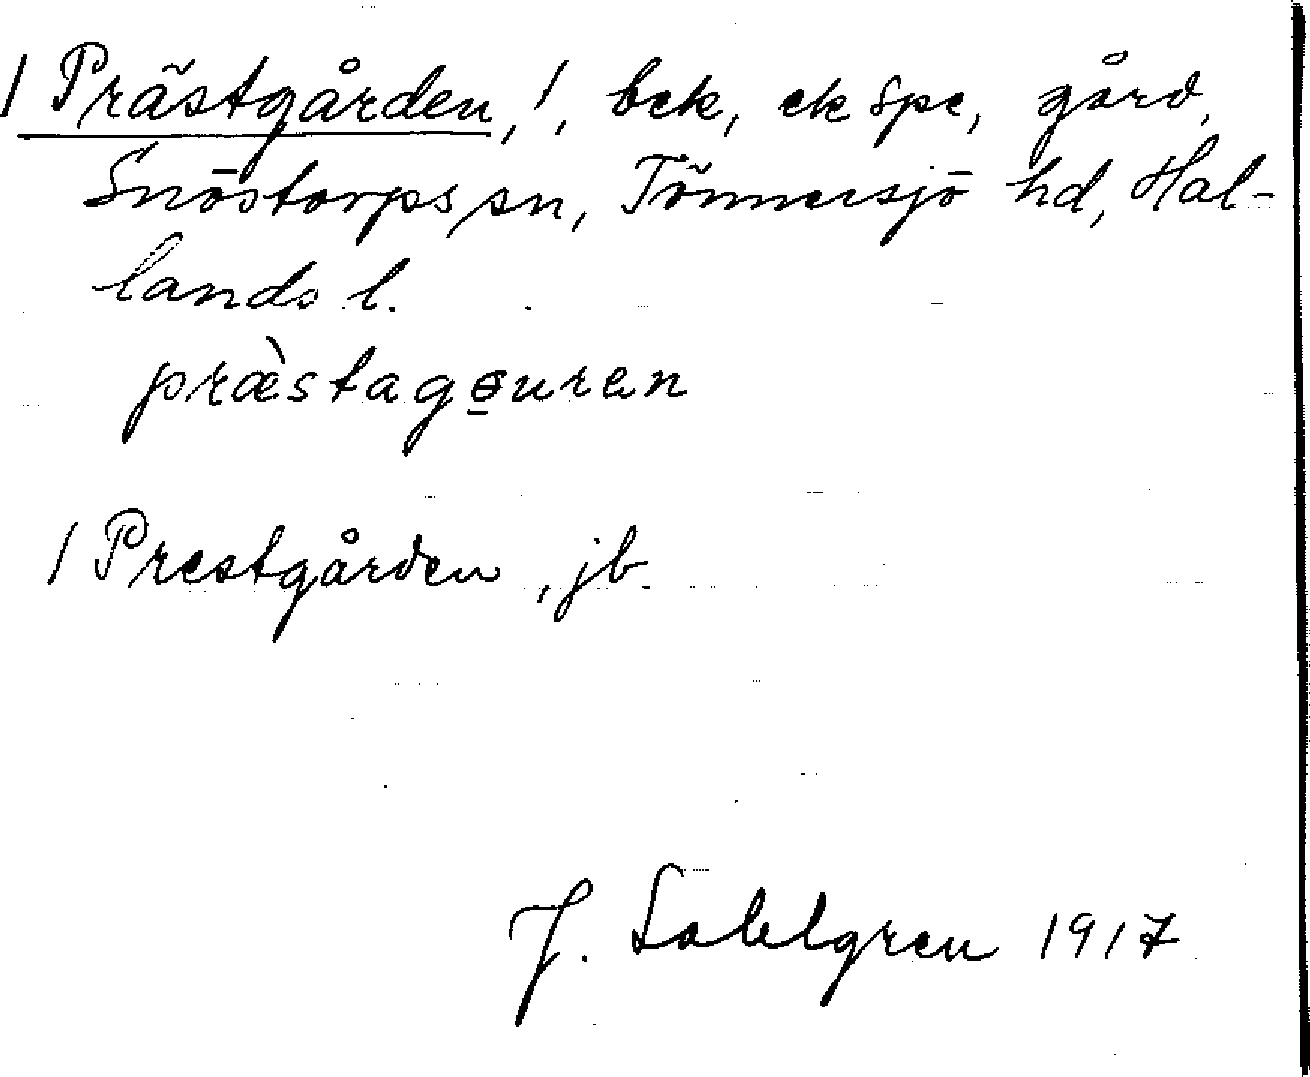 / Prästgården, !, bek, ekspe, gård,
Snöstorps sn, Tönnersjö hd, Hal-
lands l.
præ̀stagɵ̱uren
/ Prestgården, jb.
J. Sahlgren 1917